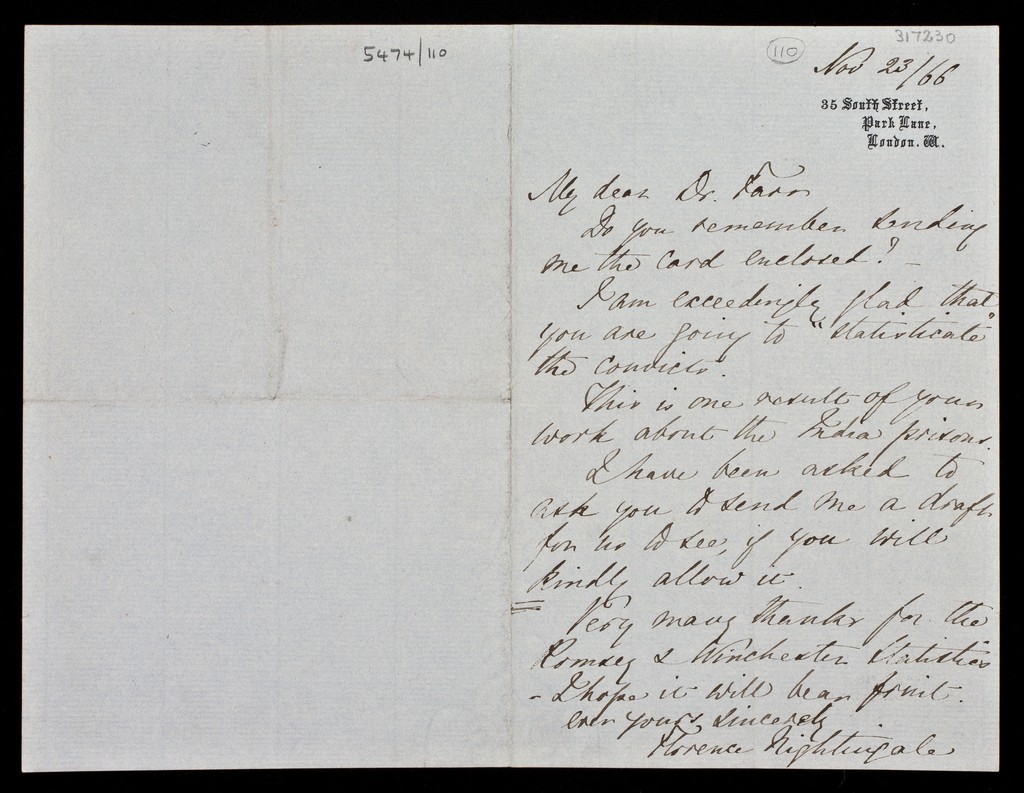 5474/110
110
317230
Nov 23/66
35 South Street,
Park Lane,
London. W.
My dear Dr. Farr
Do you remember sending
me the card enclosed? –
I am exceedingly glad that
you are going to "statisticate"
the convicts.
This is one result of your
work about the India prisons.
I have been asked to
ask you to send me a draft
for us to see, if you will
kindly allow it.
Very many thanks for the
Romsey & Winchester Statistics
– I hope it will bear fruit.
ever yours sincerely
Florence Nightingale